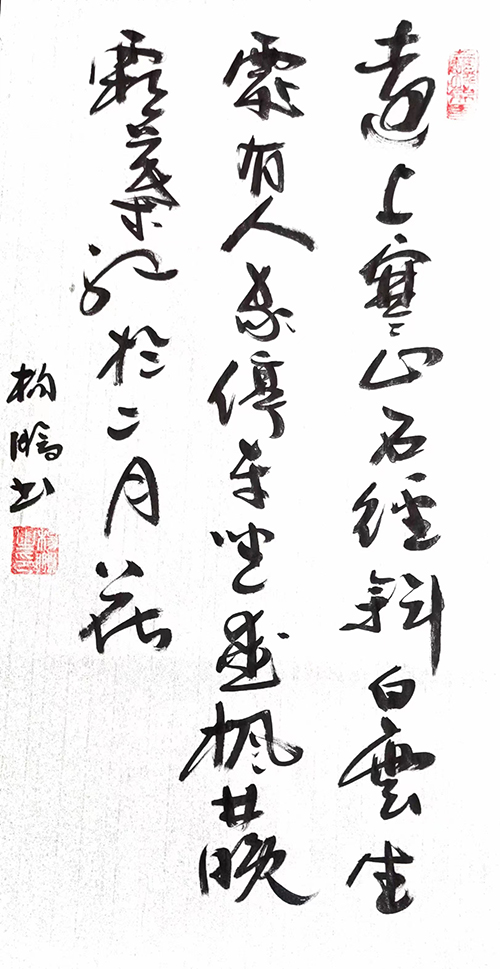 遠上寒山石徑斜白雲生
處有人家停車坐愛楓林晚
霜葉紅於二月花
書